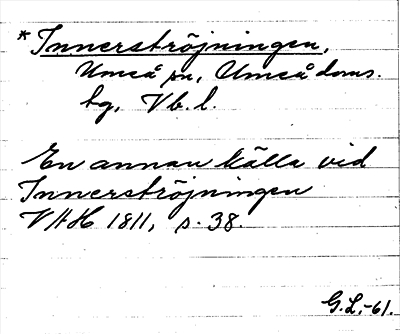 * Innerströjningen,
Umeå sn, Umeå doms.
hg, Vb. l.
En annan källa vid
Innerströjningen
VAH 1811, s. 38.
G.L.-61.